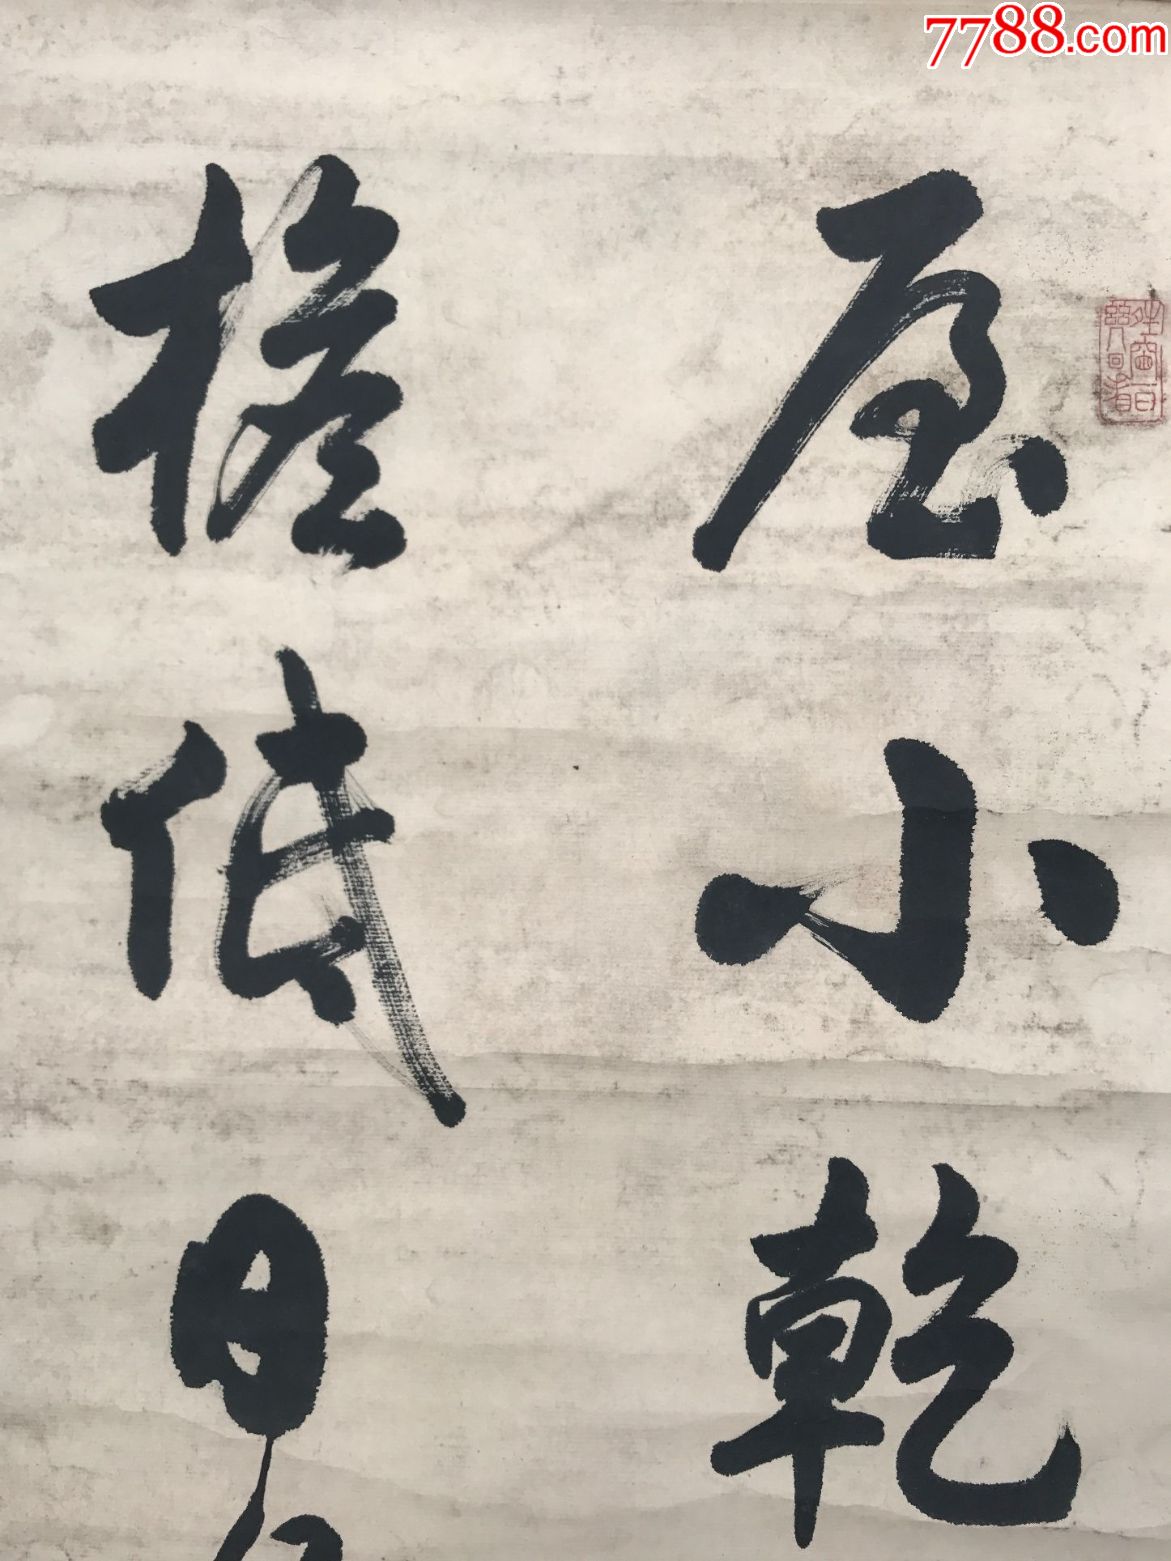 7788.com
屋小乾
檐低日